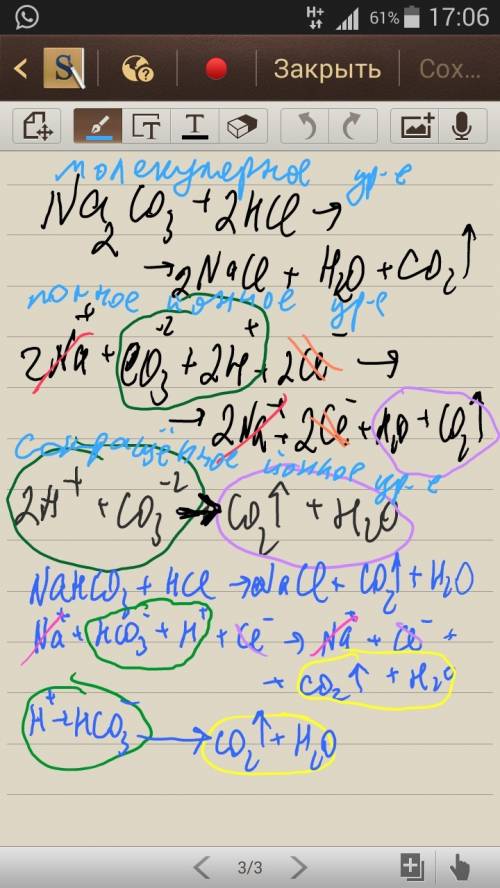 H+ 61% 17:06
S Закрыть Сох...
T T
молекулярное ур-е
Na₂CO₃ + 2HCl →
→ 2NaCl + H₂O + CO₂↑
полное ионное ур-е
2Na⁺ + CO₃⁻² + 2H⁺ + 2Cl⁻ →
→ 2Na⁺ + 2Cl⁻ + H₂O + CO₂↑
Сокращённое ионное ур-е
2H⁺ + CO₃⁻² → CO₂↑ + H₂O
NaHCO₃ + HCl → NaCl + CO₂↑ + H₂O
Na⁺ + HCO₃⁻ + H⁺ + Cl⁻ → Na⁺ + Cl⁻ +
+ CO₂↑ + H₂O
H⁺ + HCO₃⁻ → CO₂↑ + H₂O
3/3